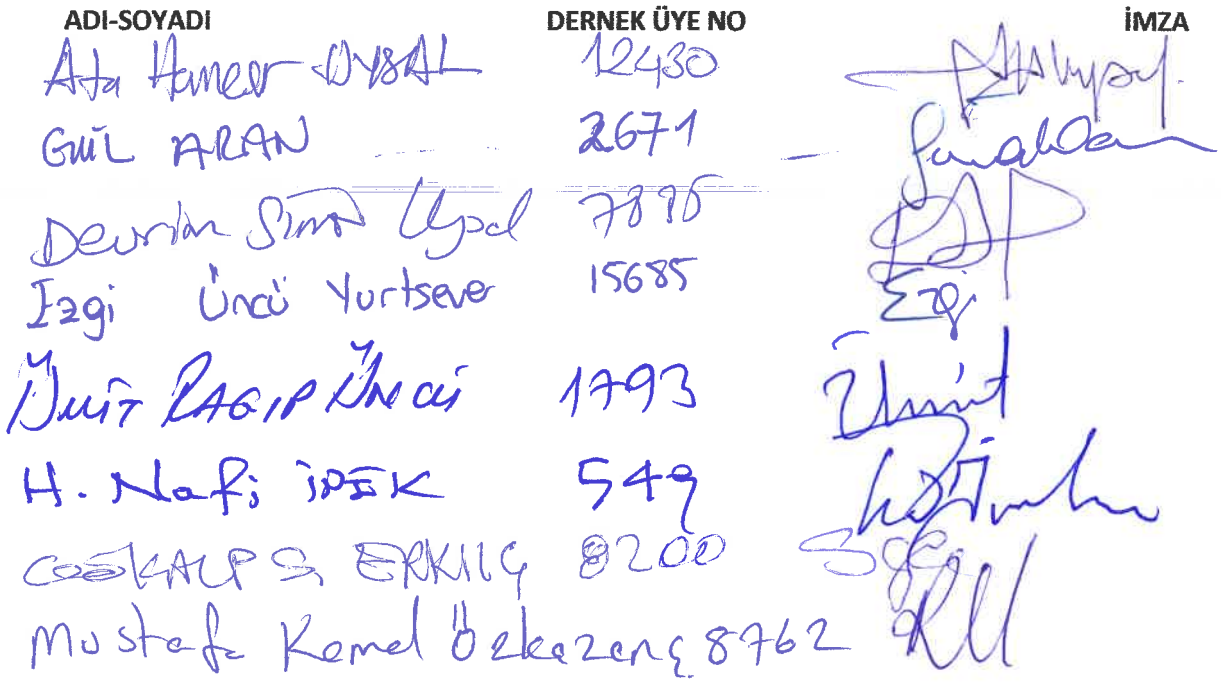 ADI-SOYADI DERNEK ÜYE NO İMZA
Ata Hancer UYSAL 12430
GÜL ARAN 2671
Devrim Uysal
Ezgi Üncü Yurtsever 15685 Ezgi
ÜMİT RAGIP ÜNCÜ 1793 Ümit
H. Nafi İPEK 549
COŞKALP S. ERKILIÇ 8200
Mustafa Kemal Özkazanç 8762